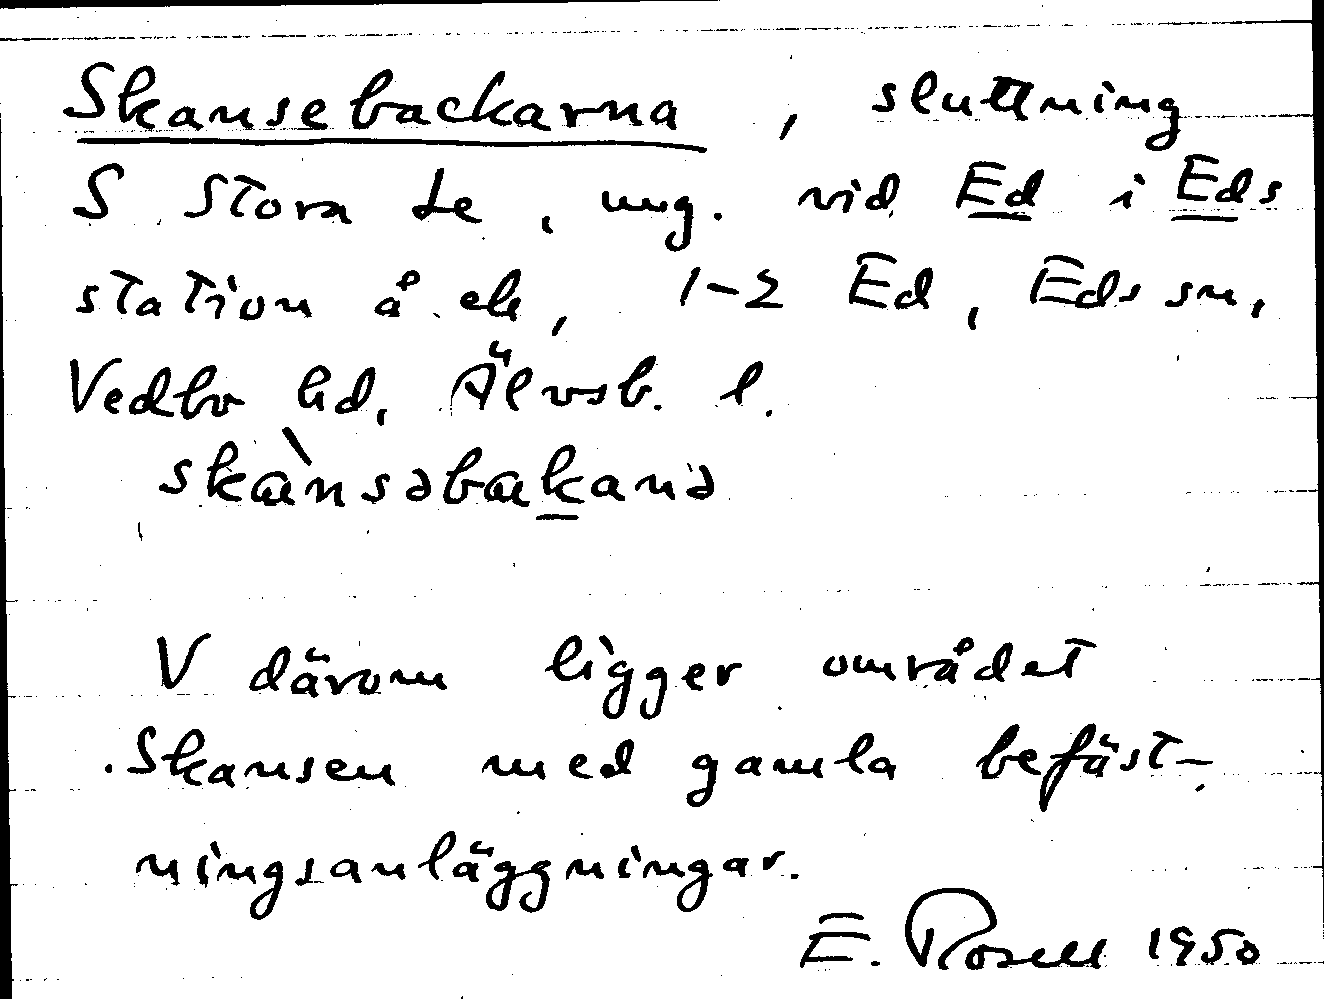 Skansebackarna, sluttning
S Stora Le, ung. vid Ed i Eds
station å ek, 1-2 Ed, Eds sn,
Vedbo hd, Älvsb. l.
skànsəbakanə
V därom ligger området
Skansen med gamla befäst-
ningsanläggningar.
E. Rosell 1950